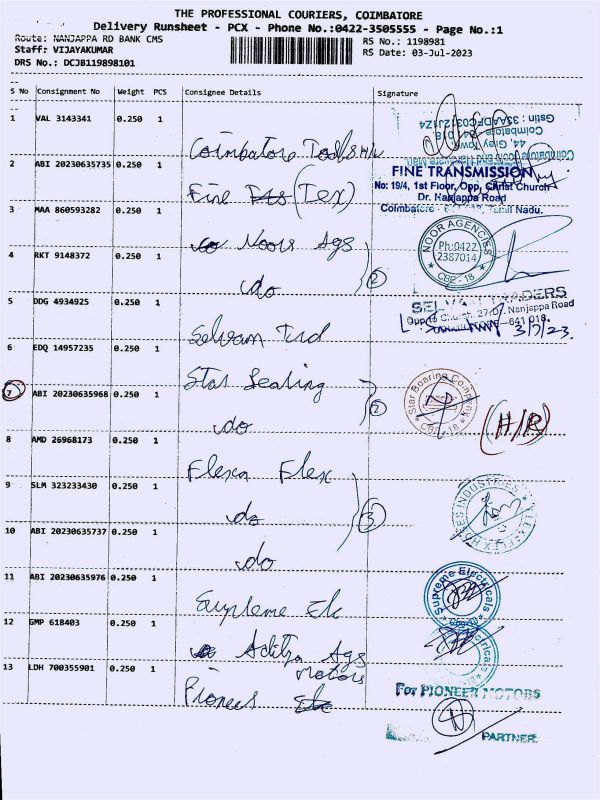 THE PROFESSIONAL COURIERS, COIMBATORE
Delivery Runsheet - PCX - Phone No.:0422-3505555 - Page No.:1
Route: NANJAPPA RD BANK CMS
RS No.: 1198981
Staff: VIJAYAKUMAR
RS Date: 03-Jul-2023
DRS No.: DCJB119898101
S No Consignment No Weight PCS Consignee Details Signature
1 VAL 3143341 0.250 1
Gstin : 33AADFC0312J1Z4
Coimbatore
44, Gray Town
Coimbatore Tools
2 ABI 20230635735 0.250 1
FINE TRANSMISSION
No: 19/4, 1st Floor, Opp, Christ Church
Dr. Nanjappa Road
Coimbatore Tamil Nadu.
Fine (Tex)
3 MAA 860593282 0.250 1
Noors Ags
NOOR AGENCIES
Ph:0422
2387014
CBE - 18
4 RKT 9148372 0.250 1
do
2
5 DDG 4934925 0.250 1
TRADERS
Dr. Nanjappa Road
641 018.
3/7/23.
Selvam Trd
6 EDQ 14957235 0.250 1
Star Searing
7 ABI 20230635968 0.250 1
do
2
Star Boaring Company
CBE - 18
(H/R)
8 AMD 26968173 0.250 1
Flexo Flex
9 SLM 323233430 0.250 1
do
3
INDUSTRIES
10 ABI 20230635737 0.250 1
do
11 ABI 20230635976 0.250 1
Supreme Ele
Supreme Electricals
12 GMP 618403 0.250 1
Aditya Ags
13 LDH 700355901 0.250 1
Pioneer Motors
For PIONEER MOTORS
PARTNER